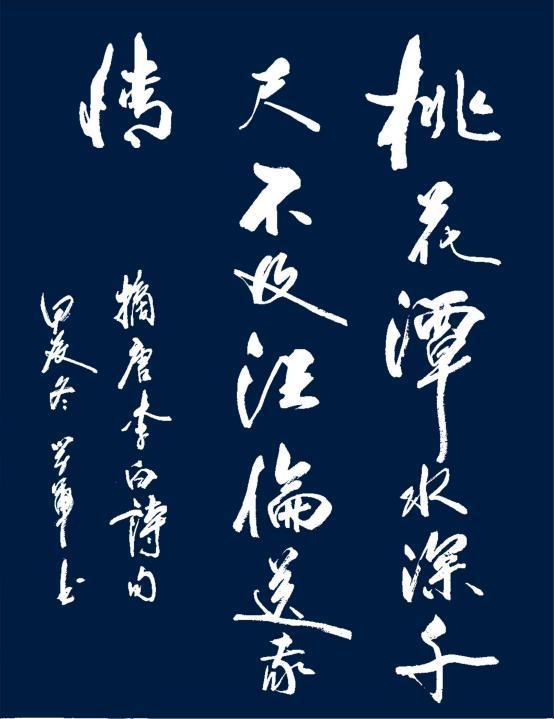 桃花潭水深千
尺不及汪倫送我
情
摘唐李白詩句
甲辰冬 軍书